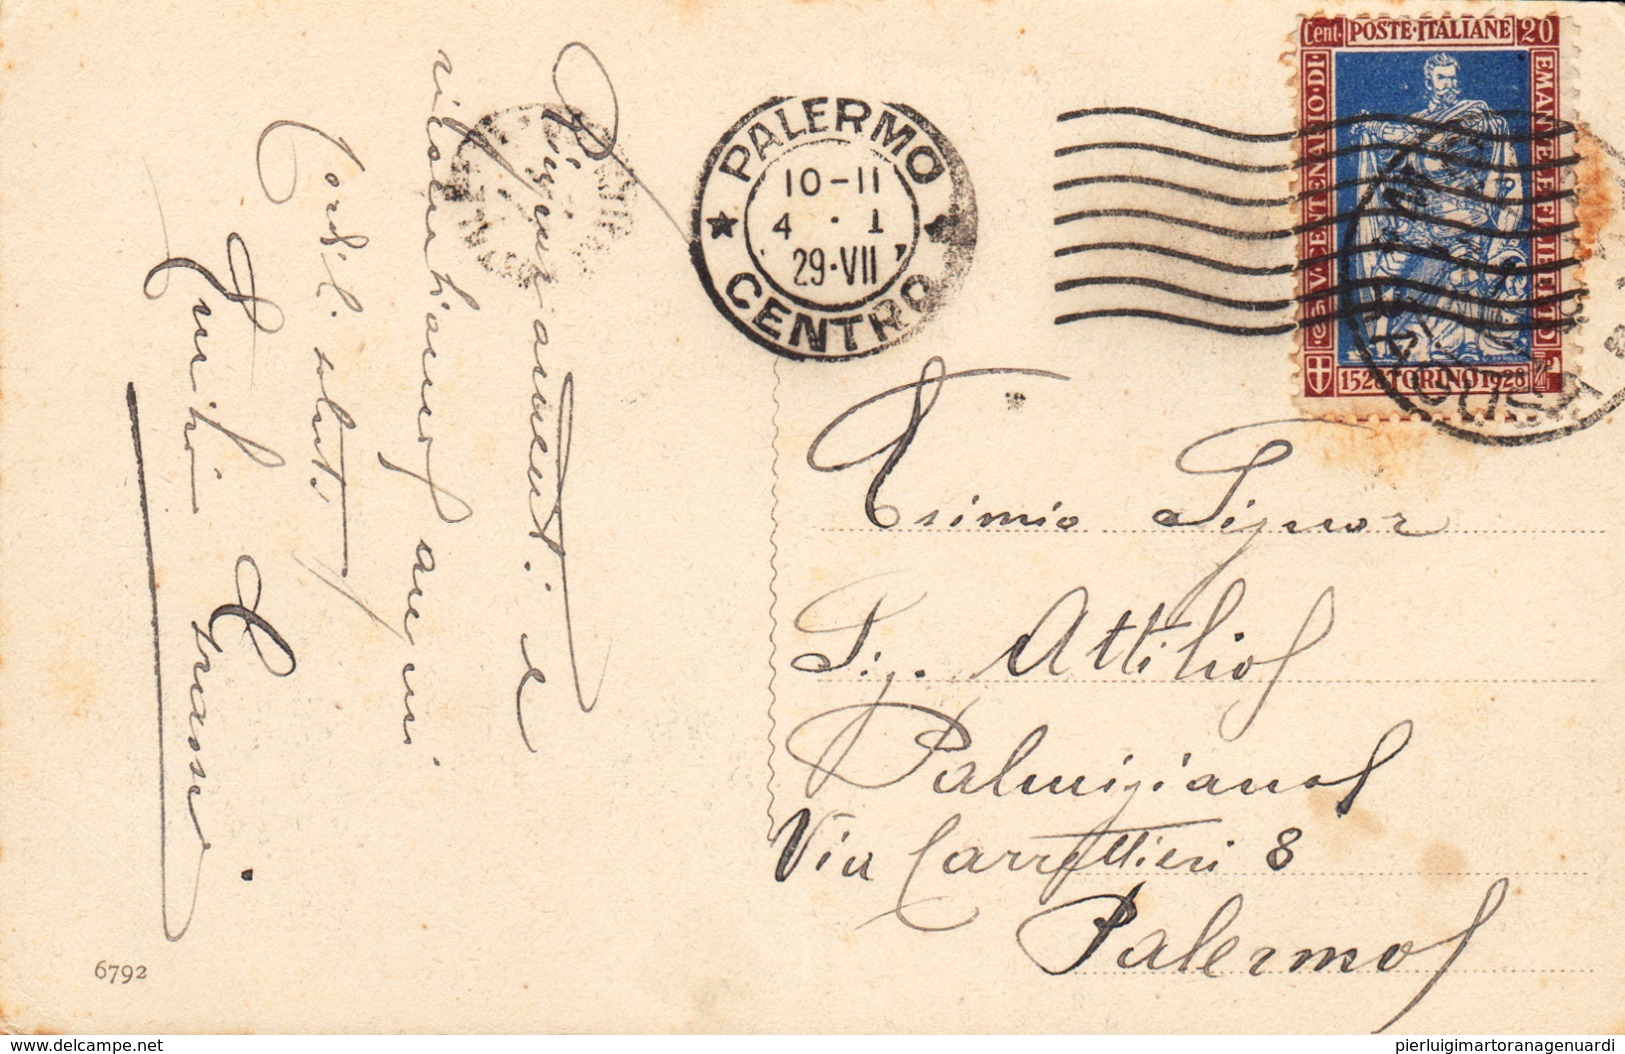 Ringraziamenti e
ricambiamo auguri
Cordili. saluti
6792
PALERMO
10-11
4 · 1
29·VII
CENTRO
Cent. POSTE·ITALIANE 20
IV·CENTENARIO·DI·
EMANVELE·FILIBERTO
1528 TORINO 1928
Esimio Signor
Sig. Attilio
Palmigiano
Via Carrettieri 8
Palermo
www.delcampe.net
pierluigimartoranagenuardi